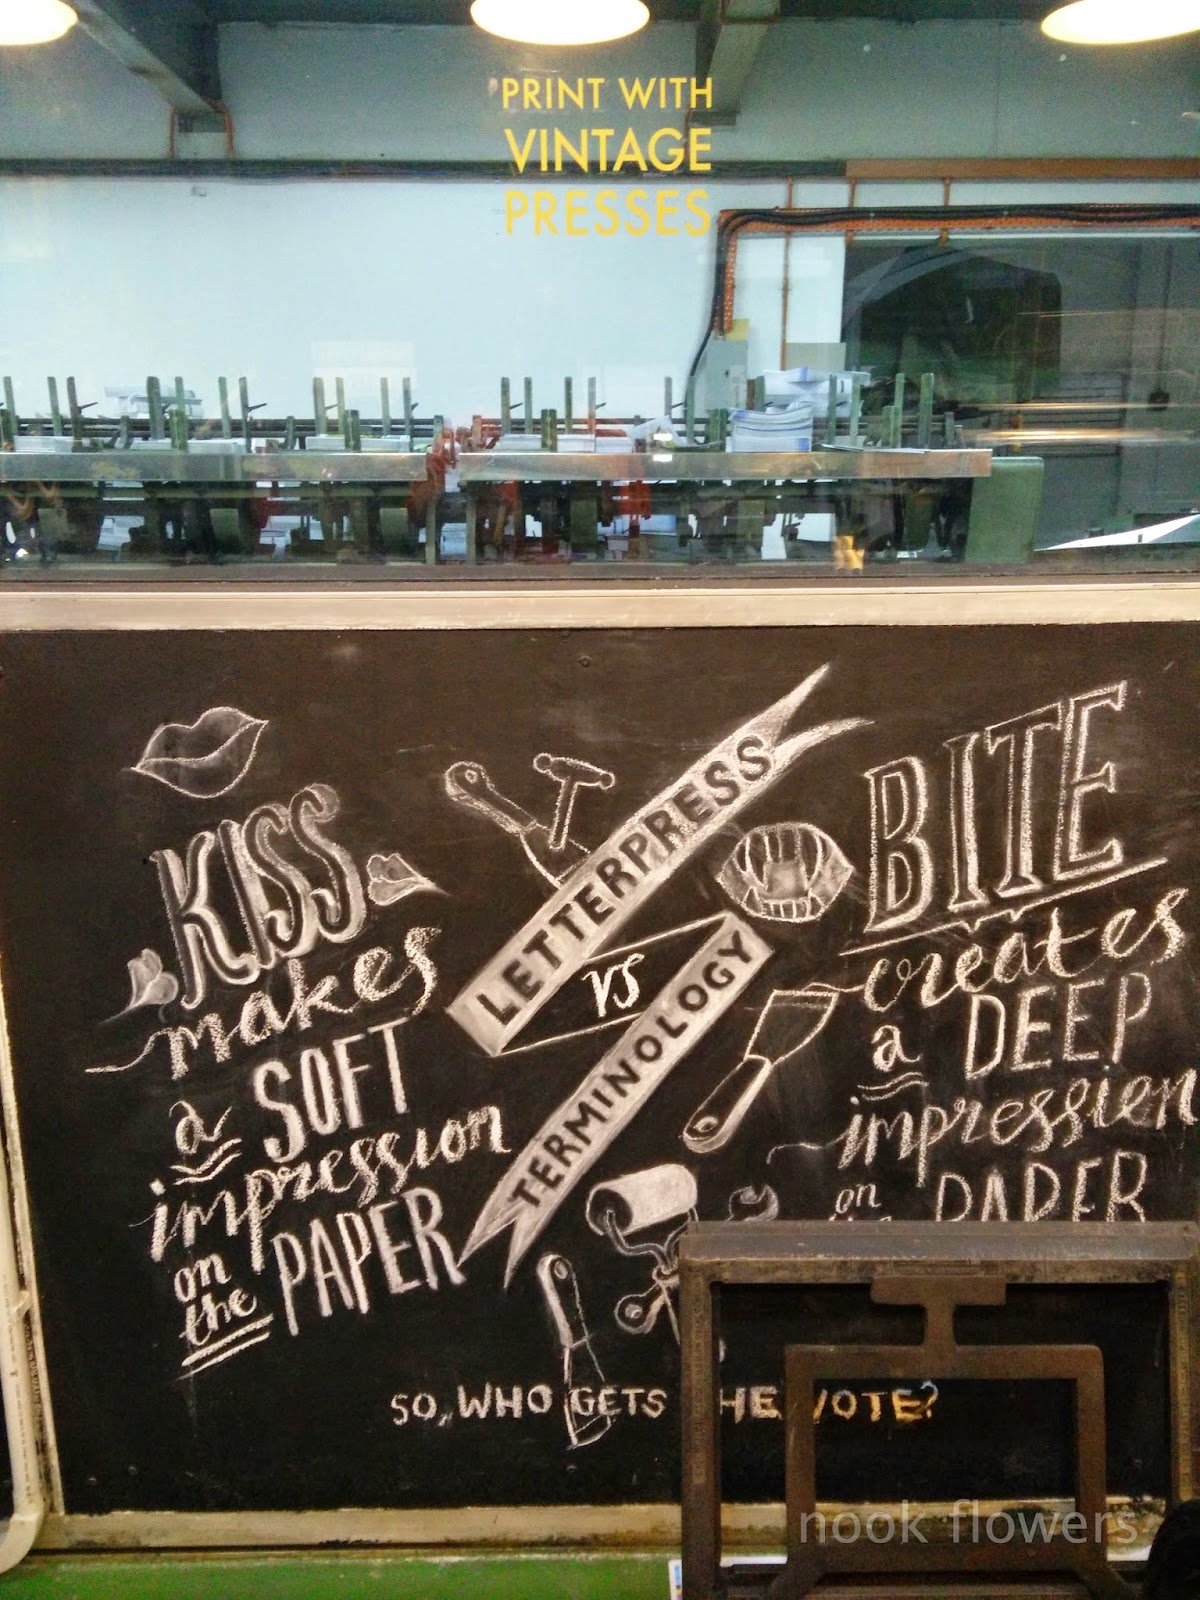 PRINT WITH
VINTAGE
PRESSES
KISS
makes
a SOFT
impression
on
the PAPER
LETTERPRESS
vs
TERMINOLOGY
BITE
creates
a DEEP
impression
on PAPER
SO, WHO GETS THE VOTE?
nook flowers